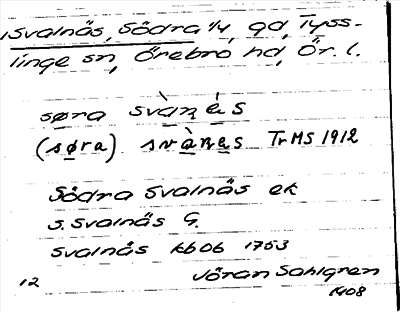 Svalnäs, Södra 1/4, gd, Tyss-
linge sn, Örebro hd, Ör. l.
søra svàṉè s
(søra) svàṉes TrMS 1912
Södra Svalnäs ek
S. Svalnäs G.
Svalnäs kb06 1753
12 Jöran Sahlgren
1408